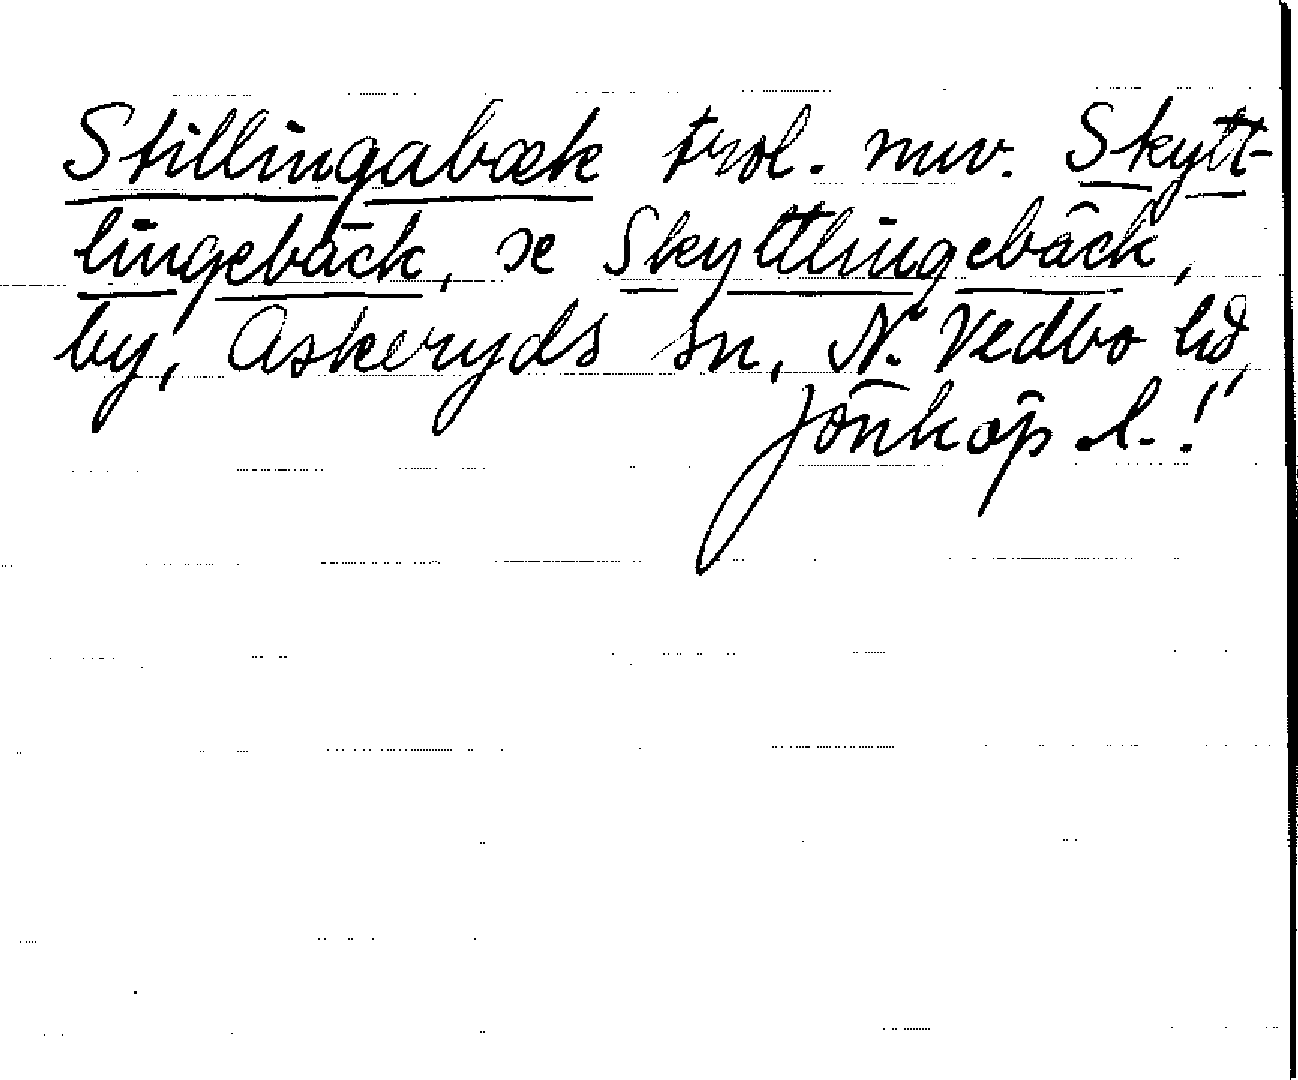 Stillingabæk trol. nuv. Skytt-
lingebäck, se Skyttlingebäck,
by, Askeryds sn, N. Vedbo hd,
Jönköp l.!